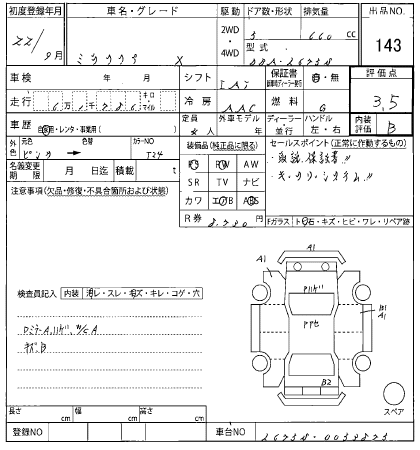 初度登録年月 車名・グレード 駆動 ドア数・形状 排気量 出品NO.
22/9月 X 2WD・4WD 5 660 cc 143
型式
DBA-L675S
車検 年 月 シフト IAT 保証書 有・無 評価点
走行 キロ・マイル 冷房 AAC 燃料 G 3.5
車歴 自家用・レンタ・事業用( ) 定員 人 外車モデル 年 ディーラー・並行 ハンドル 左・右 内装評価 B
外色 元色 ピンク 色替 カラーNO T24
名義変更期限 月 日迄 積載 t
装備品(純正品に限る)
PS PW AW
SR TV ナビ
カワ エアB ABS
R券 8,780円
セールスポイント(正常に作動するもの)
・取説、保証書!!
・キーフリーシステム!!
注意事項(欠品・修復・不具合箇所および状態)
Fガラス トビ石・キズ・ヒビ・ワレ・リペア跡
検査員記入 内装 汚レ・スレ・キズ・キレ・コゲ・穴
キズB
A1
A1
B1
A1
B2
A1
スペア
長さ cm 幅 cm 高さ cm
登録NO 車台NO L675S-0033823